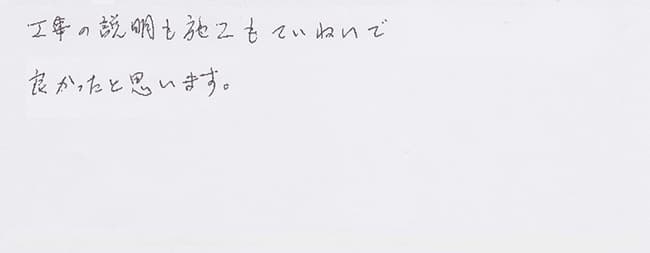 工事の説明も施工もていねいで
良かったと思います。